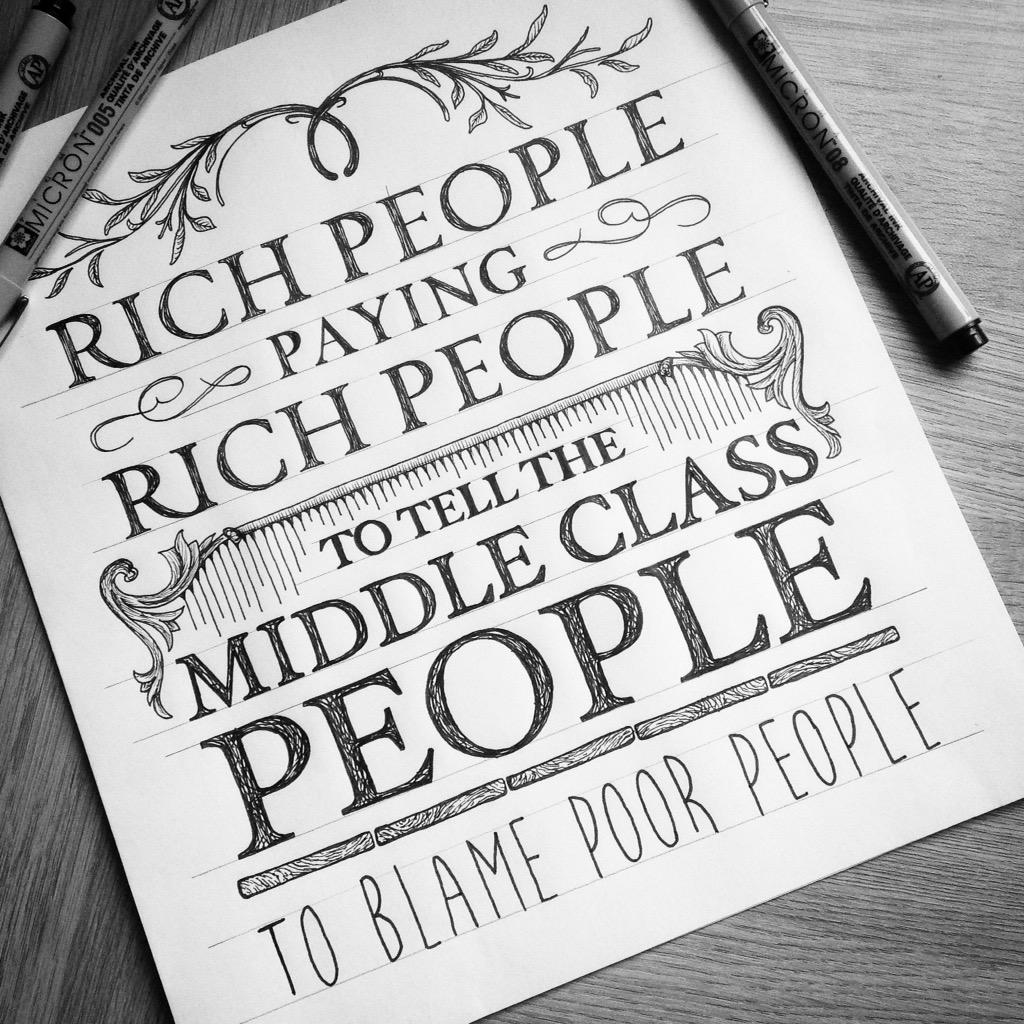 RICH PEOPLE
PAYING
RICH PEOPLE
TO TELL THE
MIDDLE CLASS
PEOPLE
TO BLAME POOR PEOPLE
MICRON 005
ARCHIVAL INK
QUALITÉ D'ARCHIVAGE
TINTA DE ARCHIVE
AP
MICRON 08
ARCHIVAL INK
QUALITÉ D'ARCHIVAGE
AP